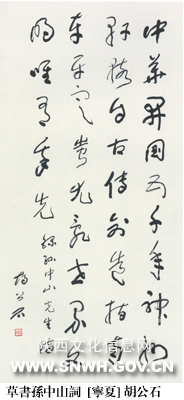 中華開國五千年神州
軒轅自古傳創造指南
車平定蚩尤亂世界文
明唯有我先 錄孫中山先生詞
胡公石
陕西文化信息网
WWW.SNWH.GOV.CN
草書孫中山詞 [寧夏] 胡公石